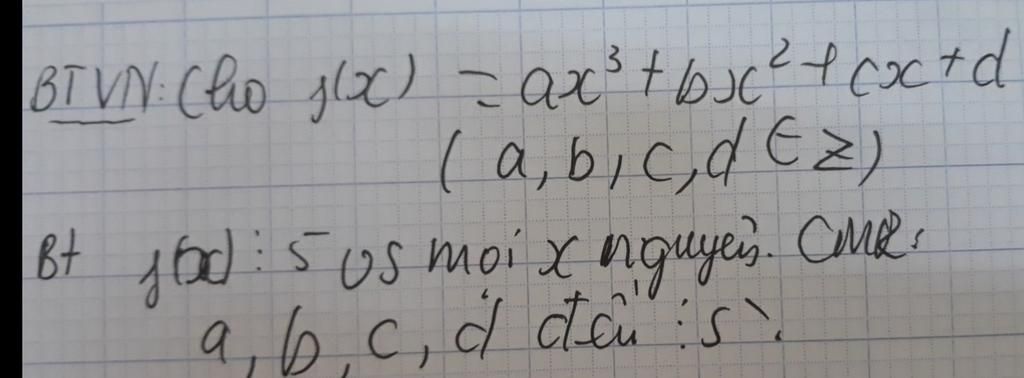 BTVN: Cho f(x) = ax³ + bx² + cx + d
(a, b, c, d ∈ Z)
Bt f(x) ⋮ 5 vs mọi x nguyên. CMR:
a, b, c, d đều ⋮ 5.